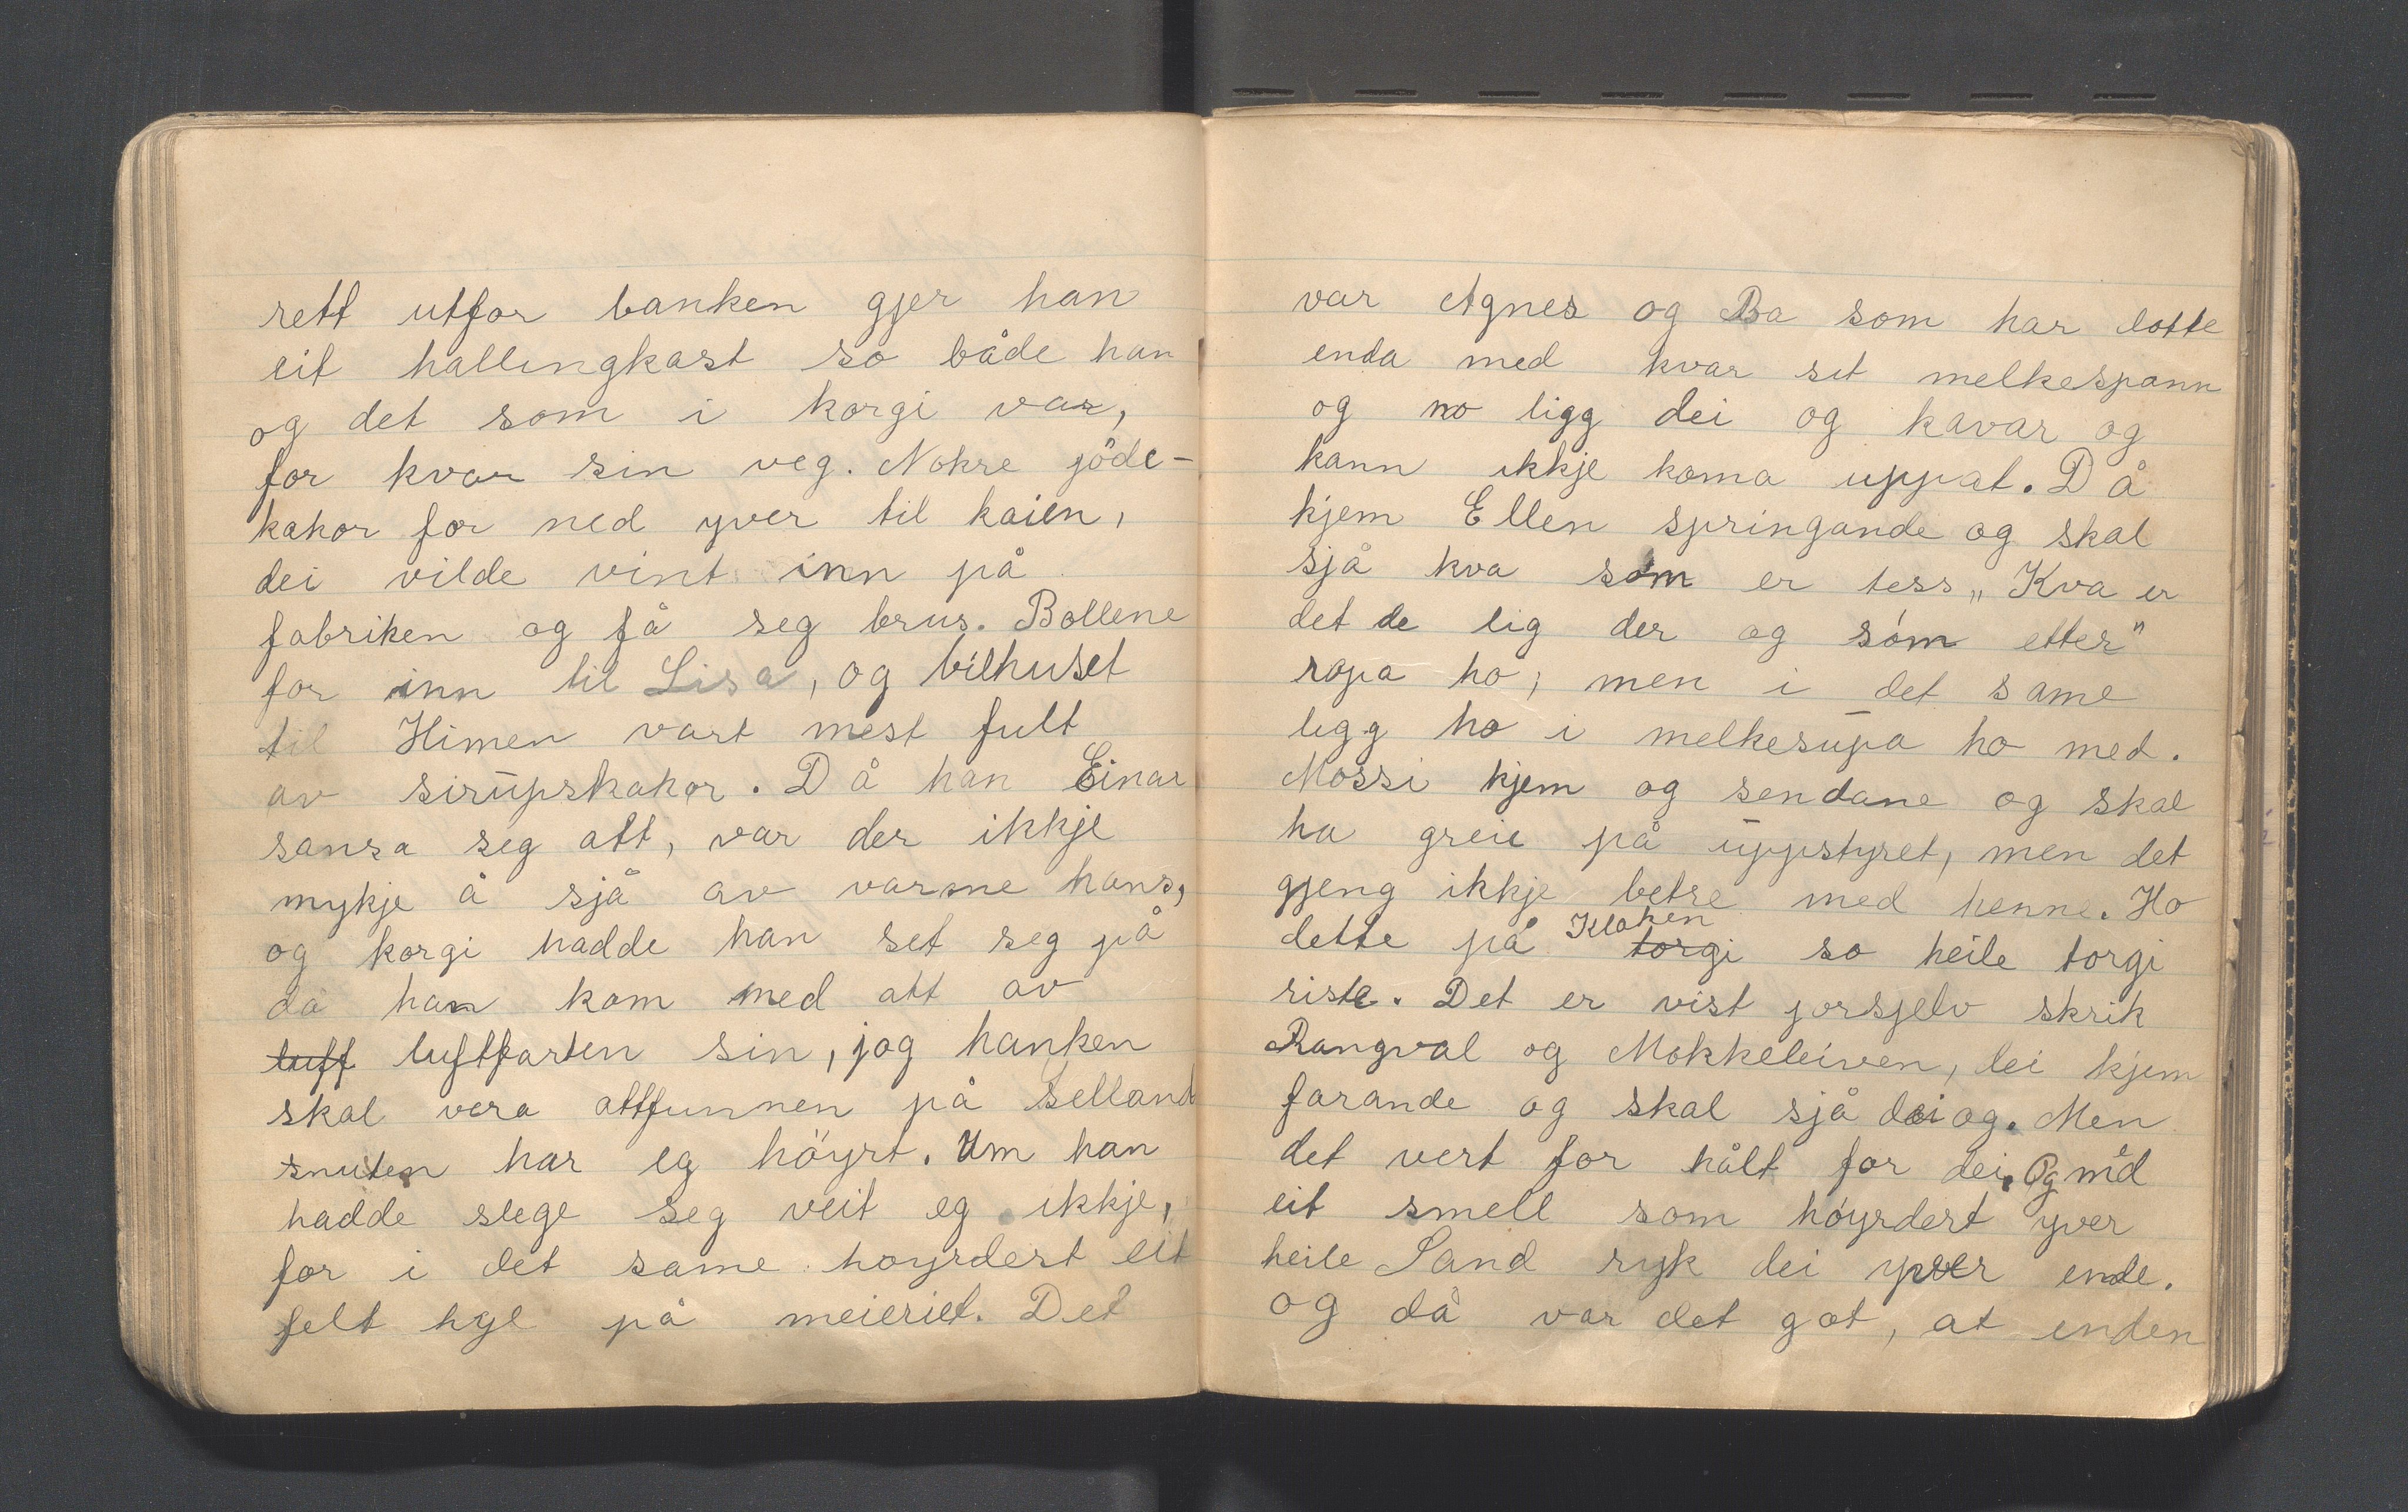 rett utfor banken gjer han
eit hallingkast so både han
og det som i korgi var,
for kvar sin veg. Nokre jöde-
kakor for ned yver til kaien,
dei vilde vint inn på
fabriken og få seg brus. Bollene
for inn til Lisa, og bilhuset
til Himen vart mest fult
av sirupskakor. Då han Einar
sansa seg att, var der ikkje
mykje å sjå av varane hans,
og korgi hadde han set seg på
då han kom med att av
luff luftfarten sin, jog hanken
skal vera attfunnen på Selland
snuten har eg höyrt. Um han
hadde slege seg veit eg ikkje,
for i det same hoyrdest eit
felt hyl på meieriet. Det
var Agnes og Bo som har dotte
enda med kvar sit melkespann
og no ligg dei og kavar og
kann ikkje koma uppat. Då
kjem Ellen springande og skal
sjå kva som er tess „Kva er
det de lig der og sóm etter"
ropa ho, men i det same
ligg ho i melkesupa ho med.
Mossi kjem og sendane og skal
ha greie på uppstyret, men det
gjeng ikkje betre med henne. Ho
dette på Kloken torgi so heile torgi
riste. Det er vist jorsjelv skrik
Rangval og Mokkeleiven, dei kjem
farande og skal sjå dei og. Men
det vert for hålt for dei. Og med
eit smell som höyrdest yver
heile Sand ryk dei yver ende.
og då var det got, at enden